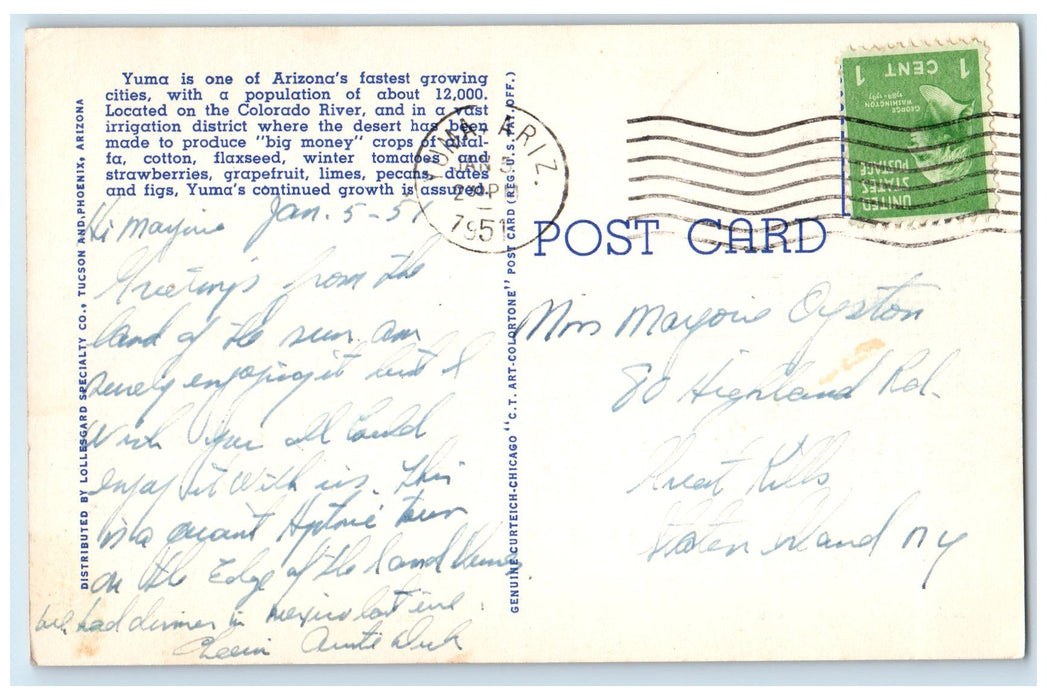 Yuma is one of Arizona's fastest growing
cities, with a population of about 12,000.
Located on the Colorado River, and in a vast
irrigation district where the desert has been
made to produce "big money" crops of alfal-
fa, cotton, flaxseed, winter tomatoes and
strawberries, grapefruit, limes, pecans, dates
and figs, Yuma's continued growth is assured.
DISTRIBUTED BY LOLLESGARD SPECIALTY CO., TUCSON AND PHOENIX, ARIZONA
Hi Marjorie Jan. 5-51
Greetings from the
land of the sun, am
surely enjoying it but I
wish you all could
enjoy it with us. This
is a quaint town
on the Edge of the Sand
we had dinner in Mexico last eve.
Auntie
GENUINE CURTEICH-CHICAGO "C.T. ART-COLORTONE" POST CARD (REG. U.S. PAT. OFF.)
YUMA, ARIZ.
JAN 5
PM
1951
POST CARD
1 CENT 1
GEORGE
WASHINGTON
1789-1797
UNITED
STATES
POSTAGE
Miss Marjorie Oyston
80 Highland Rd.
Great Kills
Staten Island NY